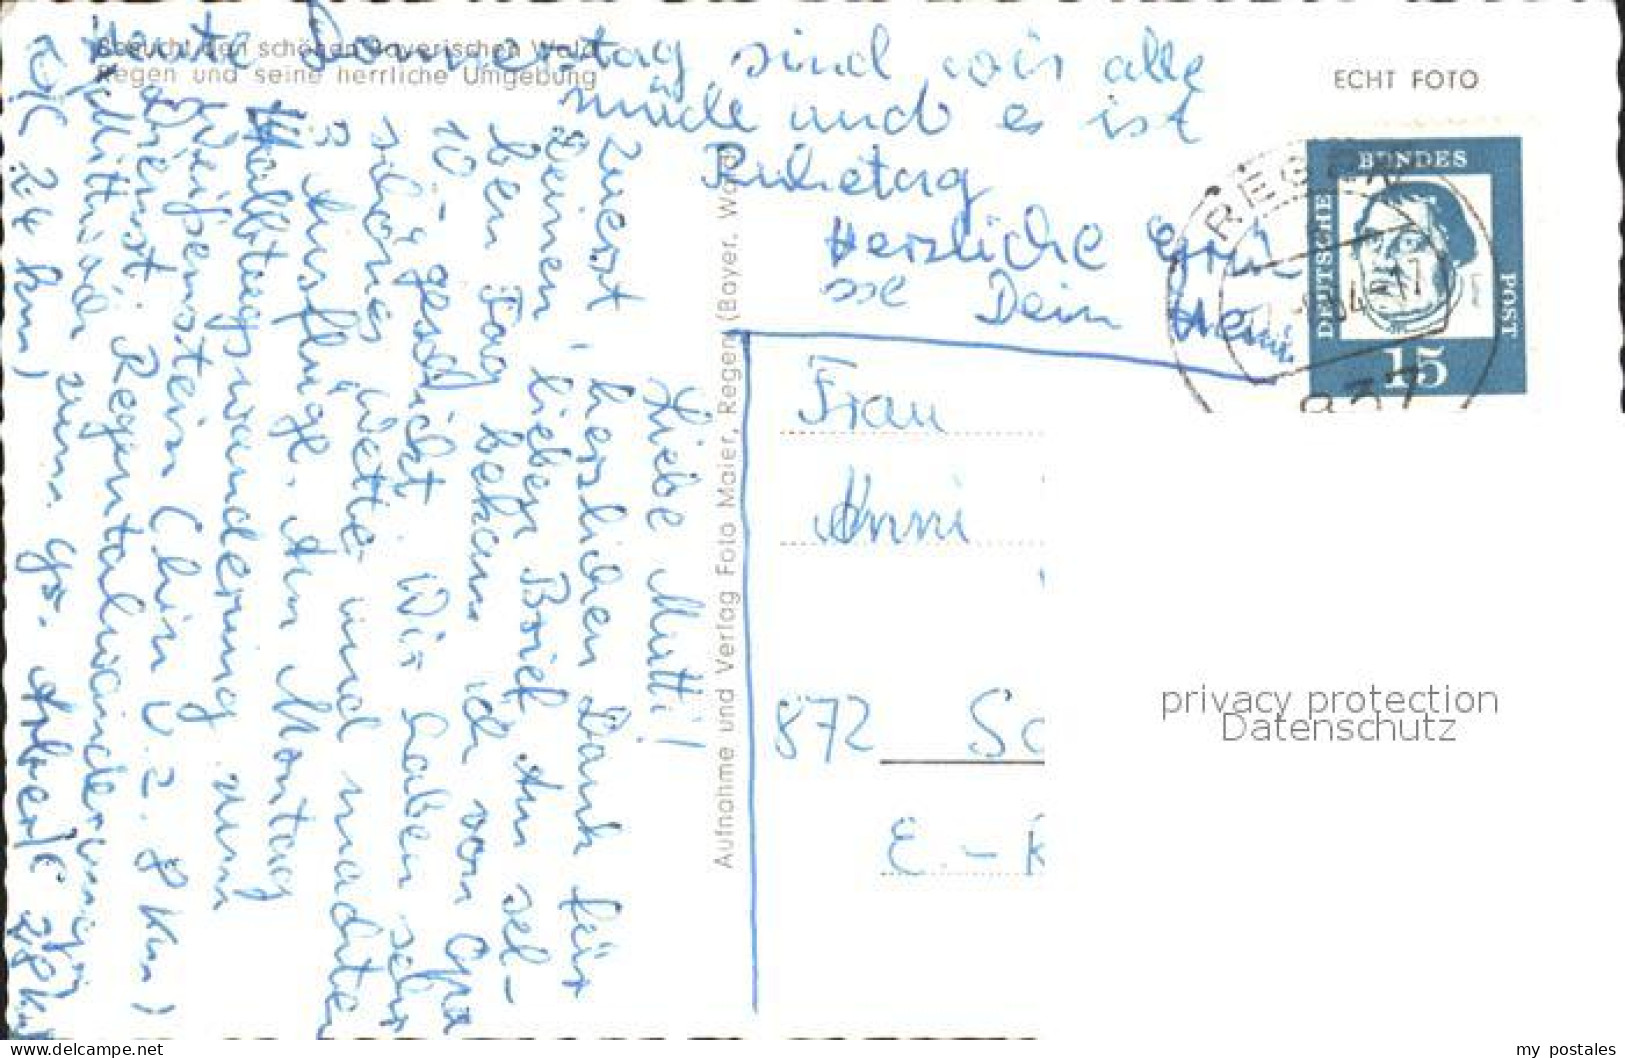 Besucht den schönen Bayerischen Wald
Regen und seine herrliche Umgebung
ECHT FOTO
Liebe Mutti!
Zuerst, herzlichen Dank für
Deinen lieben Brief. Am sel-
ben Tag bekam ich von Opa
10,- geschickt. Wir haben sehr
schönes Wetter und machten
3 Ausflüge. Am Montag
Halbtagswanderung zum
Weißenstein (hin u. z. 8 km)
Dienst. Regentalwanderung
Mittwoch zum gr. Arber (C 28 km
24 km)
Heute Donnerstag sind wir alle
müde und es ist
Ruhetag
Herzliche Grü
sse Dein
Aufnahme und Verlag Foto Maier, Regen (Bayer. Wald)
Frau
Anni
872 Sc
E.-K
REGEN
DEUTSCHE
BUNDES
POST
15
privacy protection
Datenschutz
my postales
www.delcampe.net